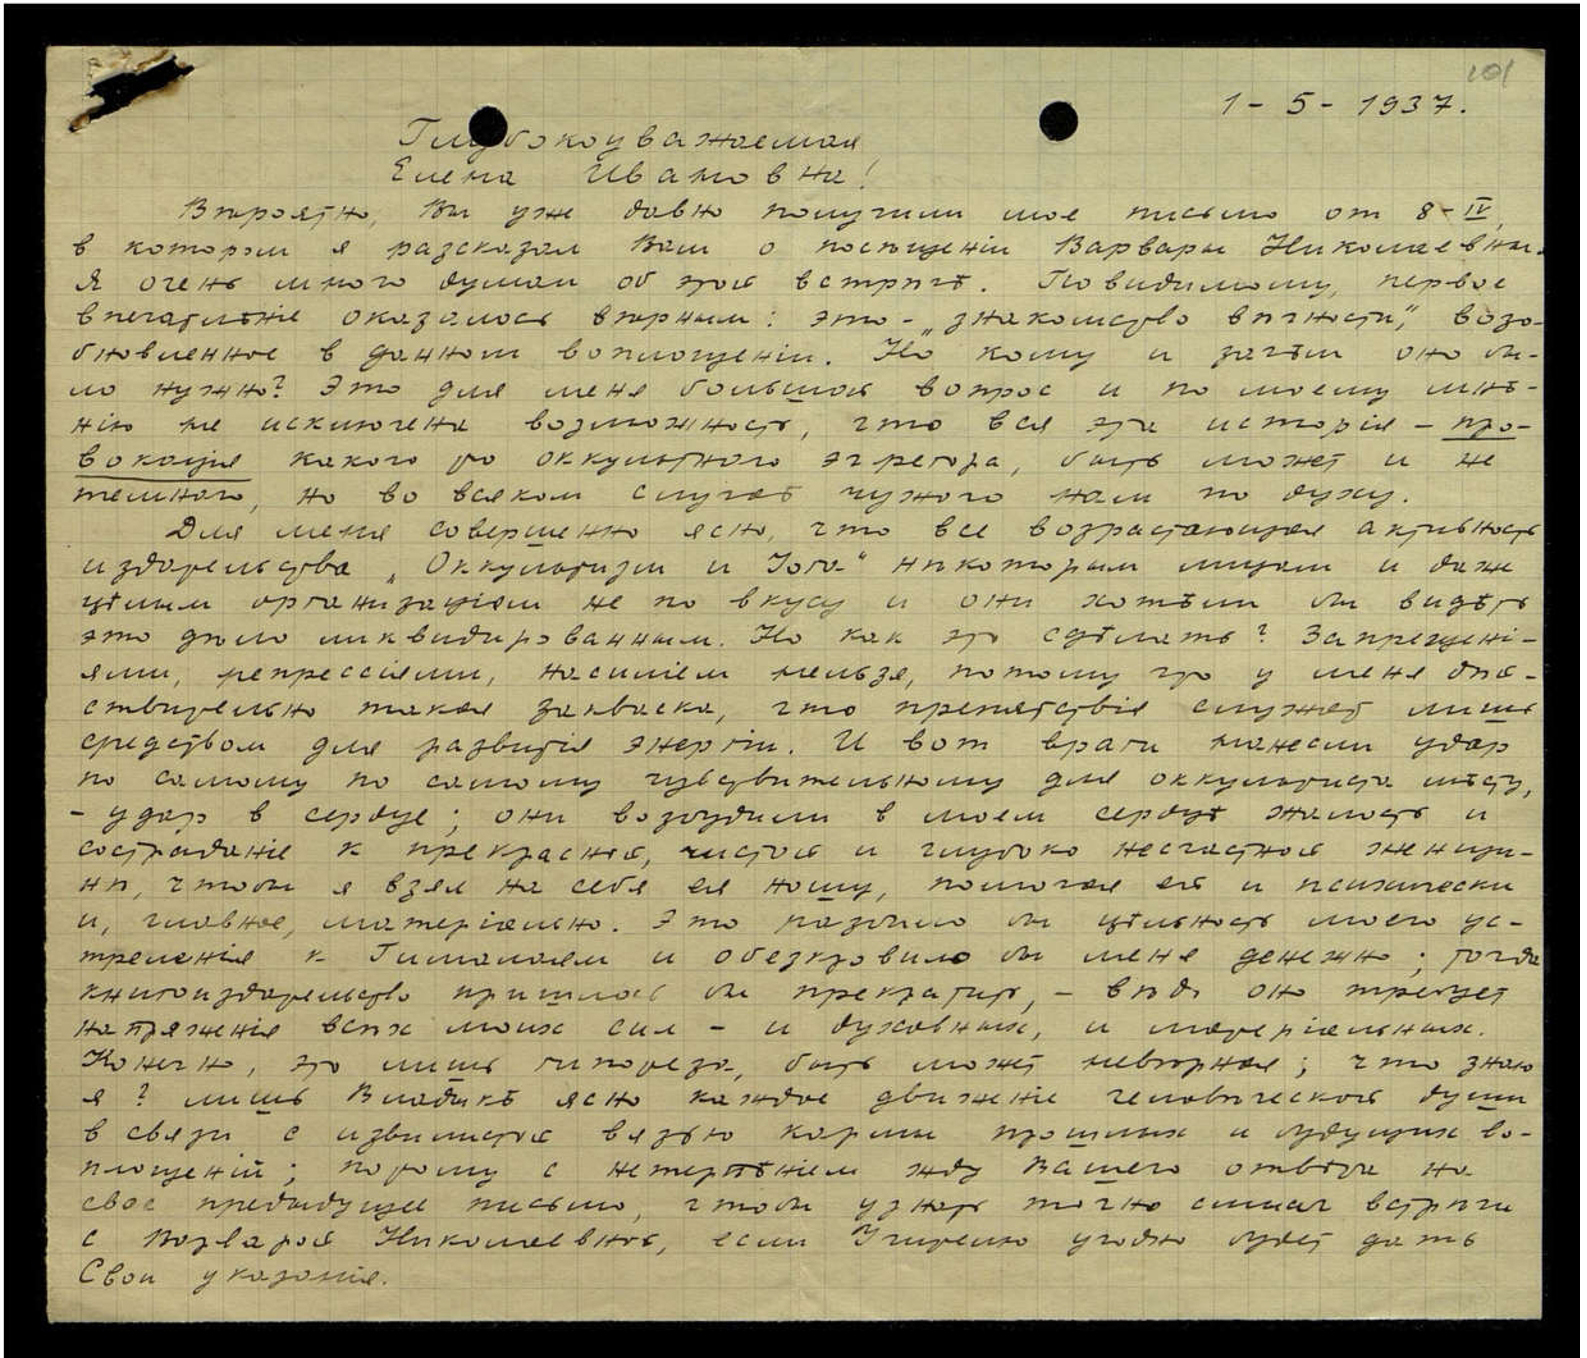 101
1 - 5 - 1937.
Глубокоуважаемая
Елена Ивановна!
Вѣроятно, Вы уже давно получили мое письмо от 8-IV,
в котором я разсказал Вам о посѣщеніи Варвары Николаевны.
Я очень много думал об этой встрѣчѣ. Повидимому, первое
впечатлѣніе оказалось вѣрным: это - „знакомство вѣчности“, возо-
бновленное в данном воплощеніи. Но кому и зачѣм оно бы-
ло нужно? Это для меня большой вопрос и по моему мнѣ-
нію не исключена возможность, что вся эта исторія - про-
вокація какого то оккультного эгрегора, быть может и не
темного, но во всяком случаѣ чужого нам по духу.
Для меня совершенно ясно, что все возрастающая активность
издательства „Оккультизм и Іога“ нѣкоторым лицам и даже
цѣлым организаціям не по вкусу и они хотѣли бы видѣть
это дѣло ликвидированным. Но как это сдѣлать? Запрещені-
ями, репрессіями, насиліем нельзя, потому что у меня дѣй-
ствительно такая закваска, что препятствія служат лишь
средством для развитія энергіи. И вот враги нанесли удар
по самому по самому чувствительному для оккультиста мѣсту,
- удар в сердце; они возбудили в моем сердцѣ жалость и
состраданіе к прекрасной, чистой и глубоко несчастной женщи-
нѣ, чтобы я взял на себя ея ношу, помогая ей и психически
и, главное, матеріально. Это разбило бы цѣльность моего ус-
тремленія к Гималаям и обезкровило бы меня денежно; тогда
книгоиздательство пришлось бы прекратить, - вѣдь оно требует
напряженія всѣх моих сил - и духовных, и матеріальных.
Конечно, это лишь гипотеза, быть может невѣрная; что знаю
я? лишь Владыкѣ ясно каждое движеніе человѣческой души
в связи с извилистой вязью кармы прошлых и будущих во-
площеній; потому с нетерпѣніем жду Вашего отвѣта на
свое предыдущее письмо, чтобы узнать точно смысл встрѣчи
с Варварой Николаевной, если Учителю угодно будет дать
Свои указанія.